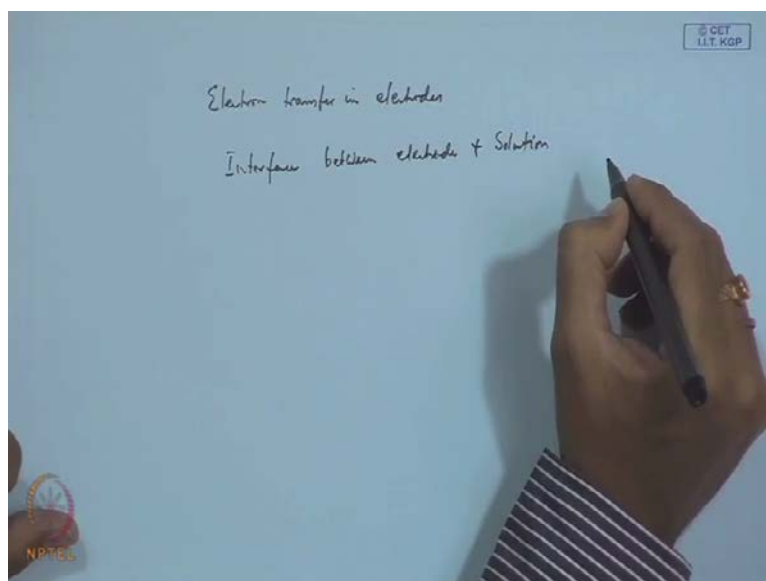 © CET
I.I.T. KGP
Electron transfer in electrodes
Interface between electrode + Solution
NPTEL